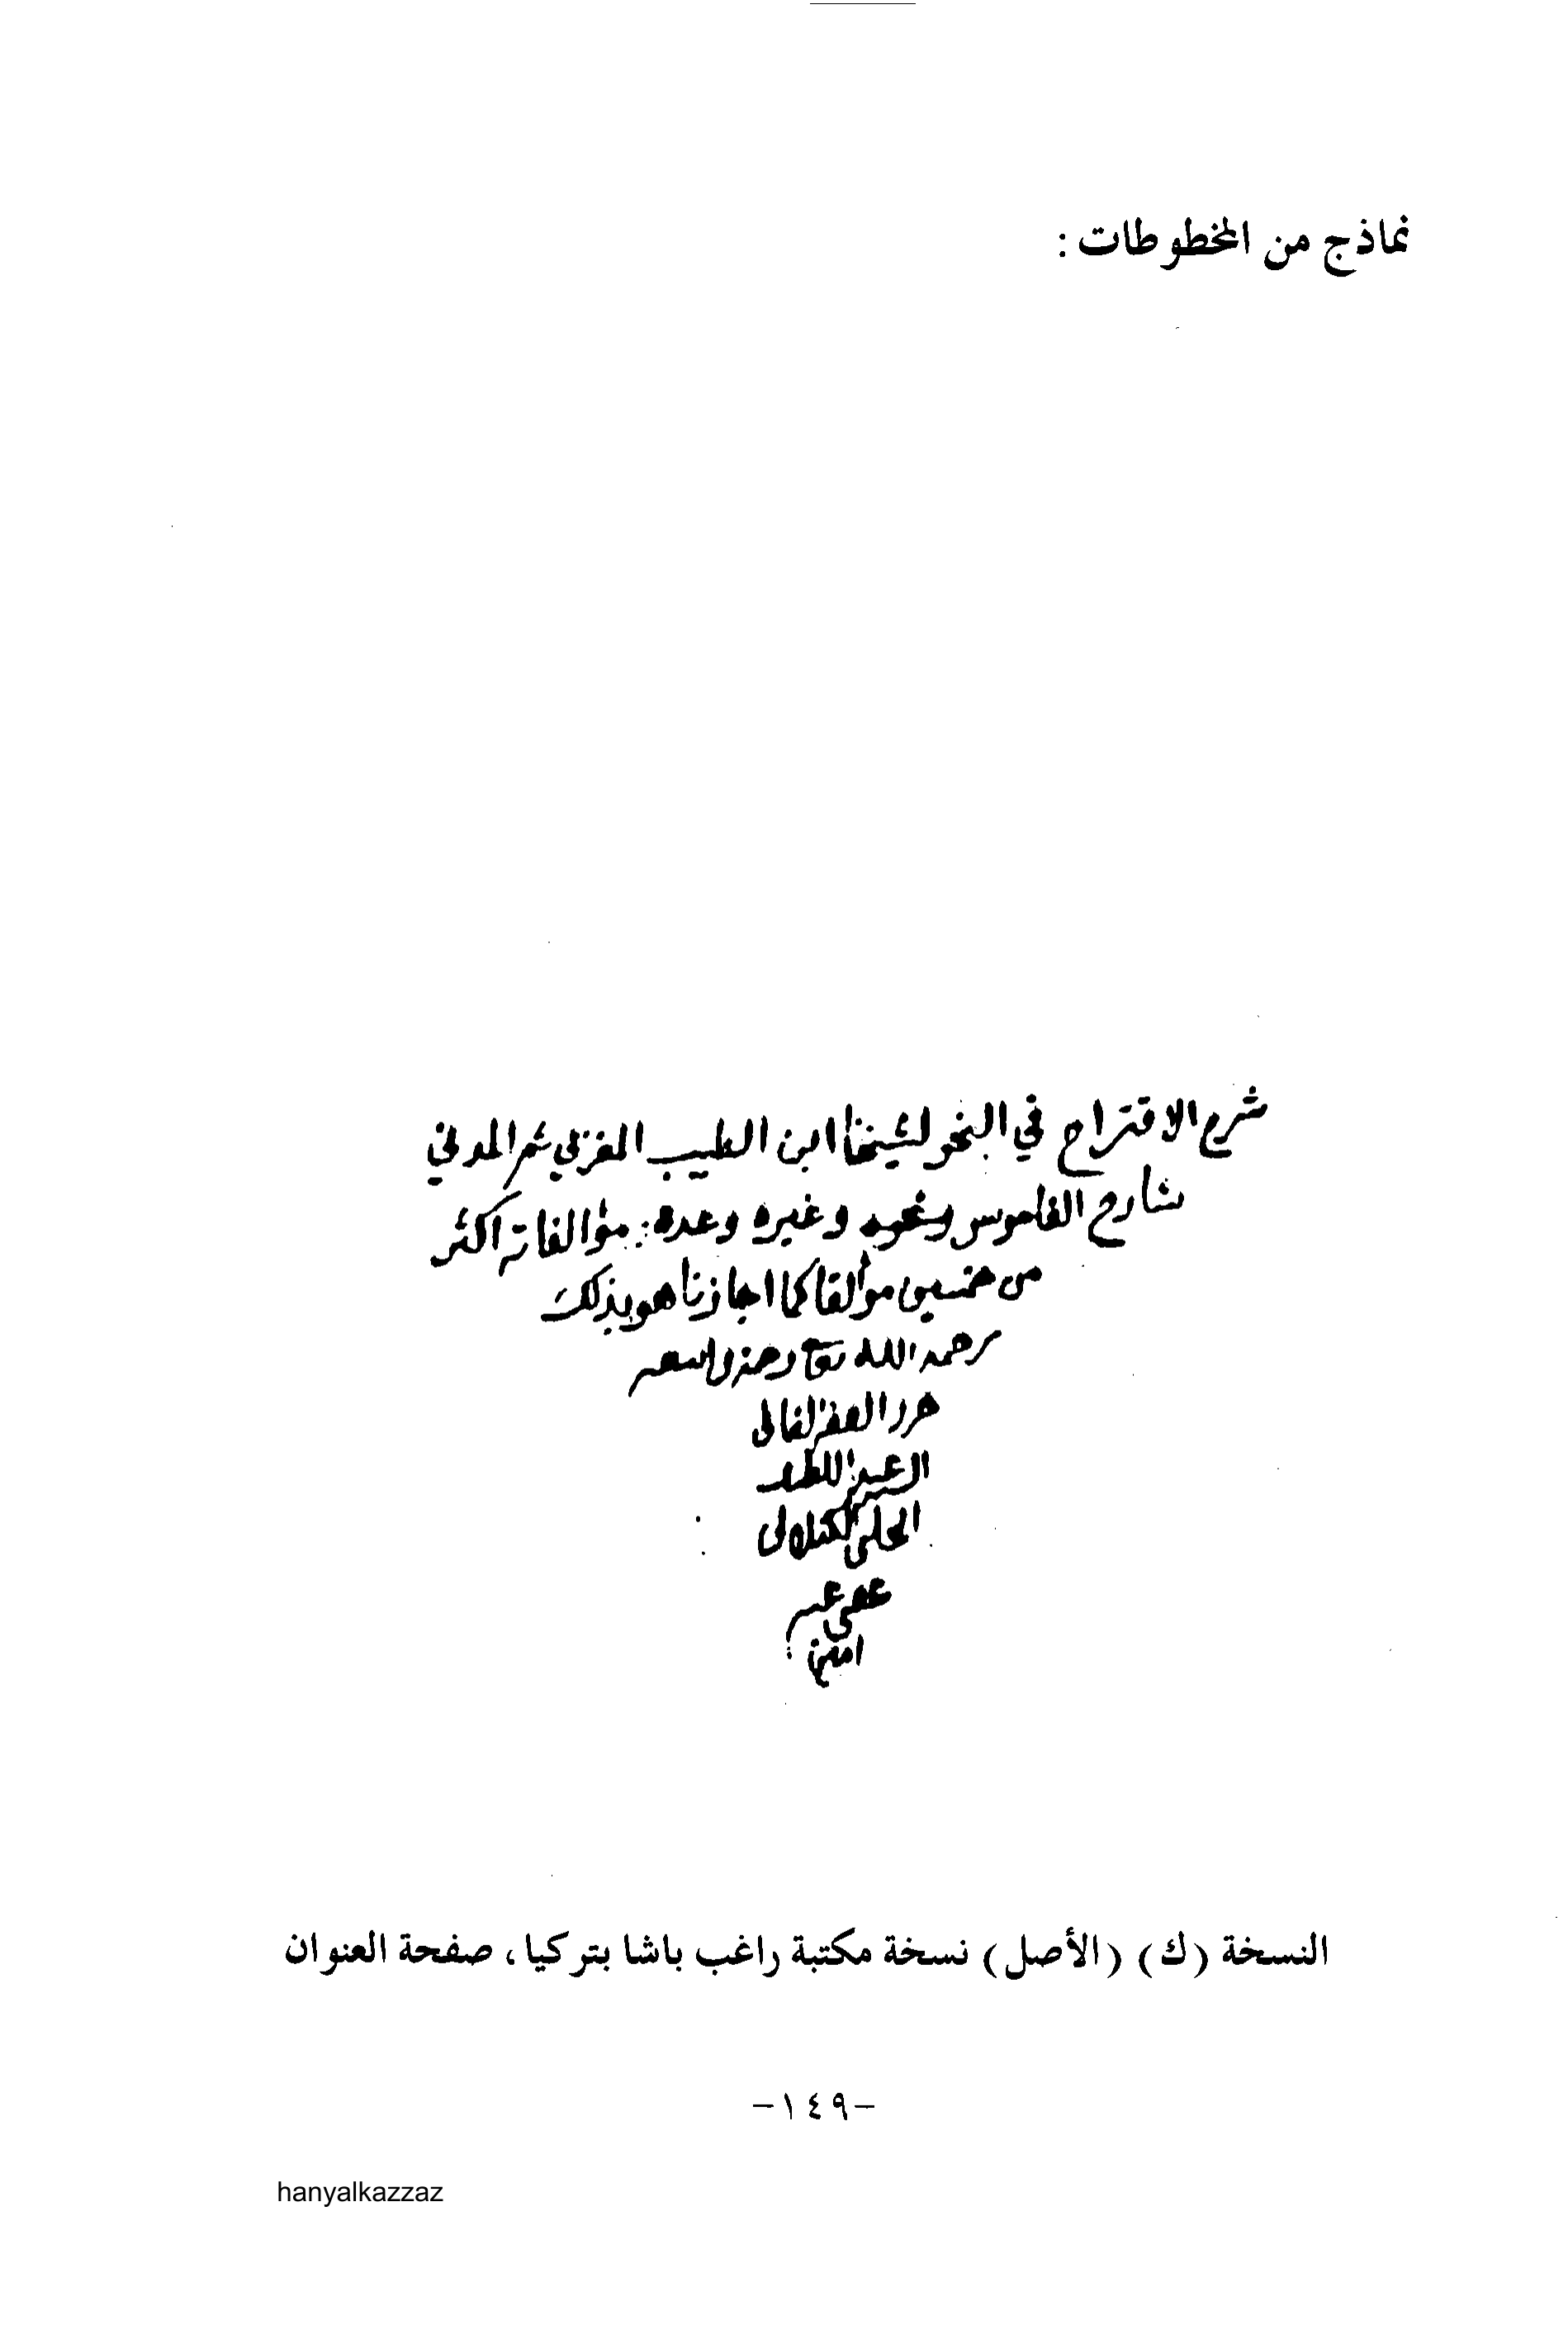 نماذج من المخطوطات :
شرح الاقتراح في النحو لشيخنا ابن الطيب المغربي ثم المدني
شارح القاموس ونحوه وغيره وعدة مؤالفاته اكثر
من خمسين مؤالفا كما اجازنا هو بذلك
رحمه الله تع رحمة واسعه
حرره الفقير
عبد اللطيف
الحلبي
عفى عنه
امين
النسخة (ك) (الأصل) نسخة مكتبة راغب باشا بتركيا، صفحة العنوان
-١٤٩-
hanyalkazzaz